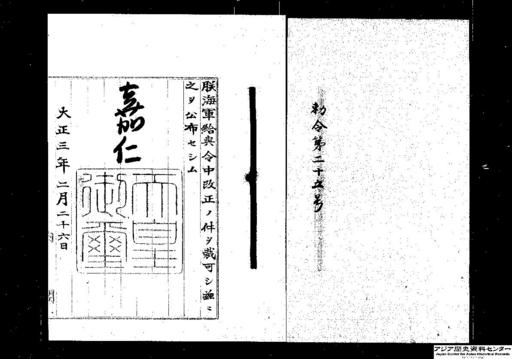 勅令第二十五号
朕海軍給与令中改正ノ件ヲ裁可シ茲ニ
之ヲ公布セシム
嘉仁
天皇
御璽
大正三年二月二十六日
アジア歴史資料センター
Japan Center for Asian Historical Records